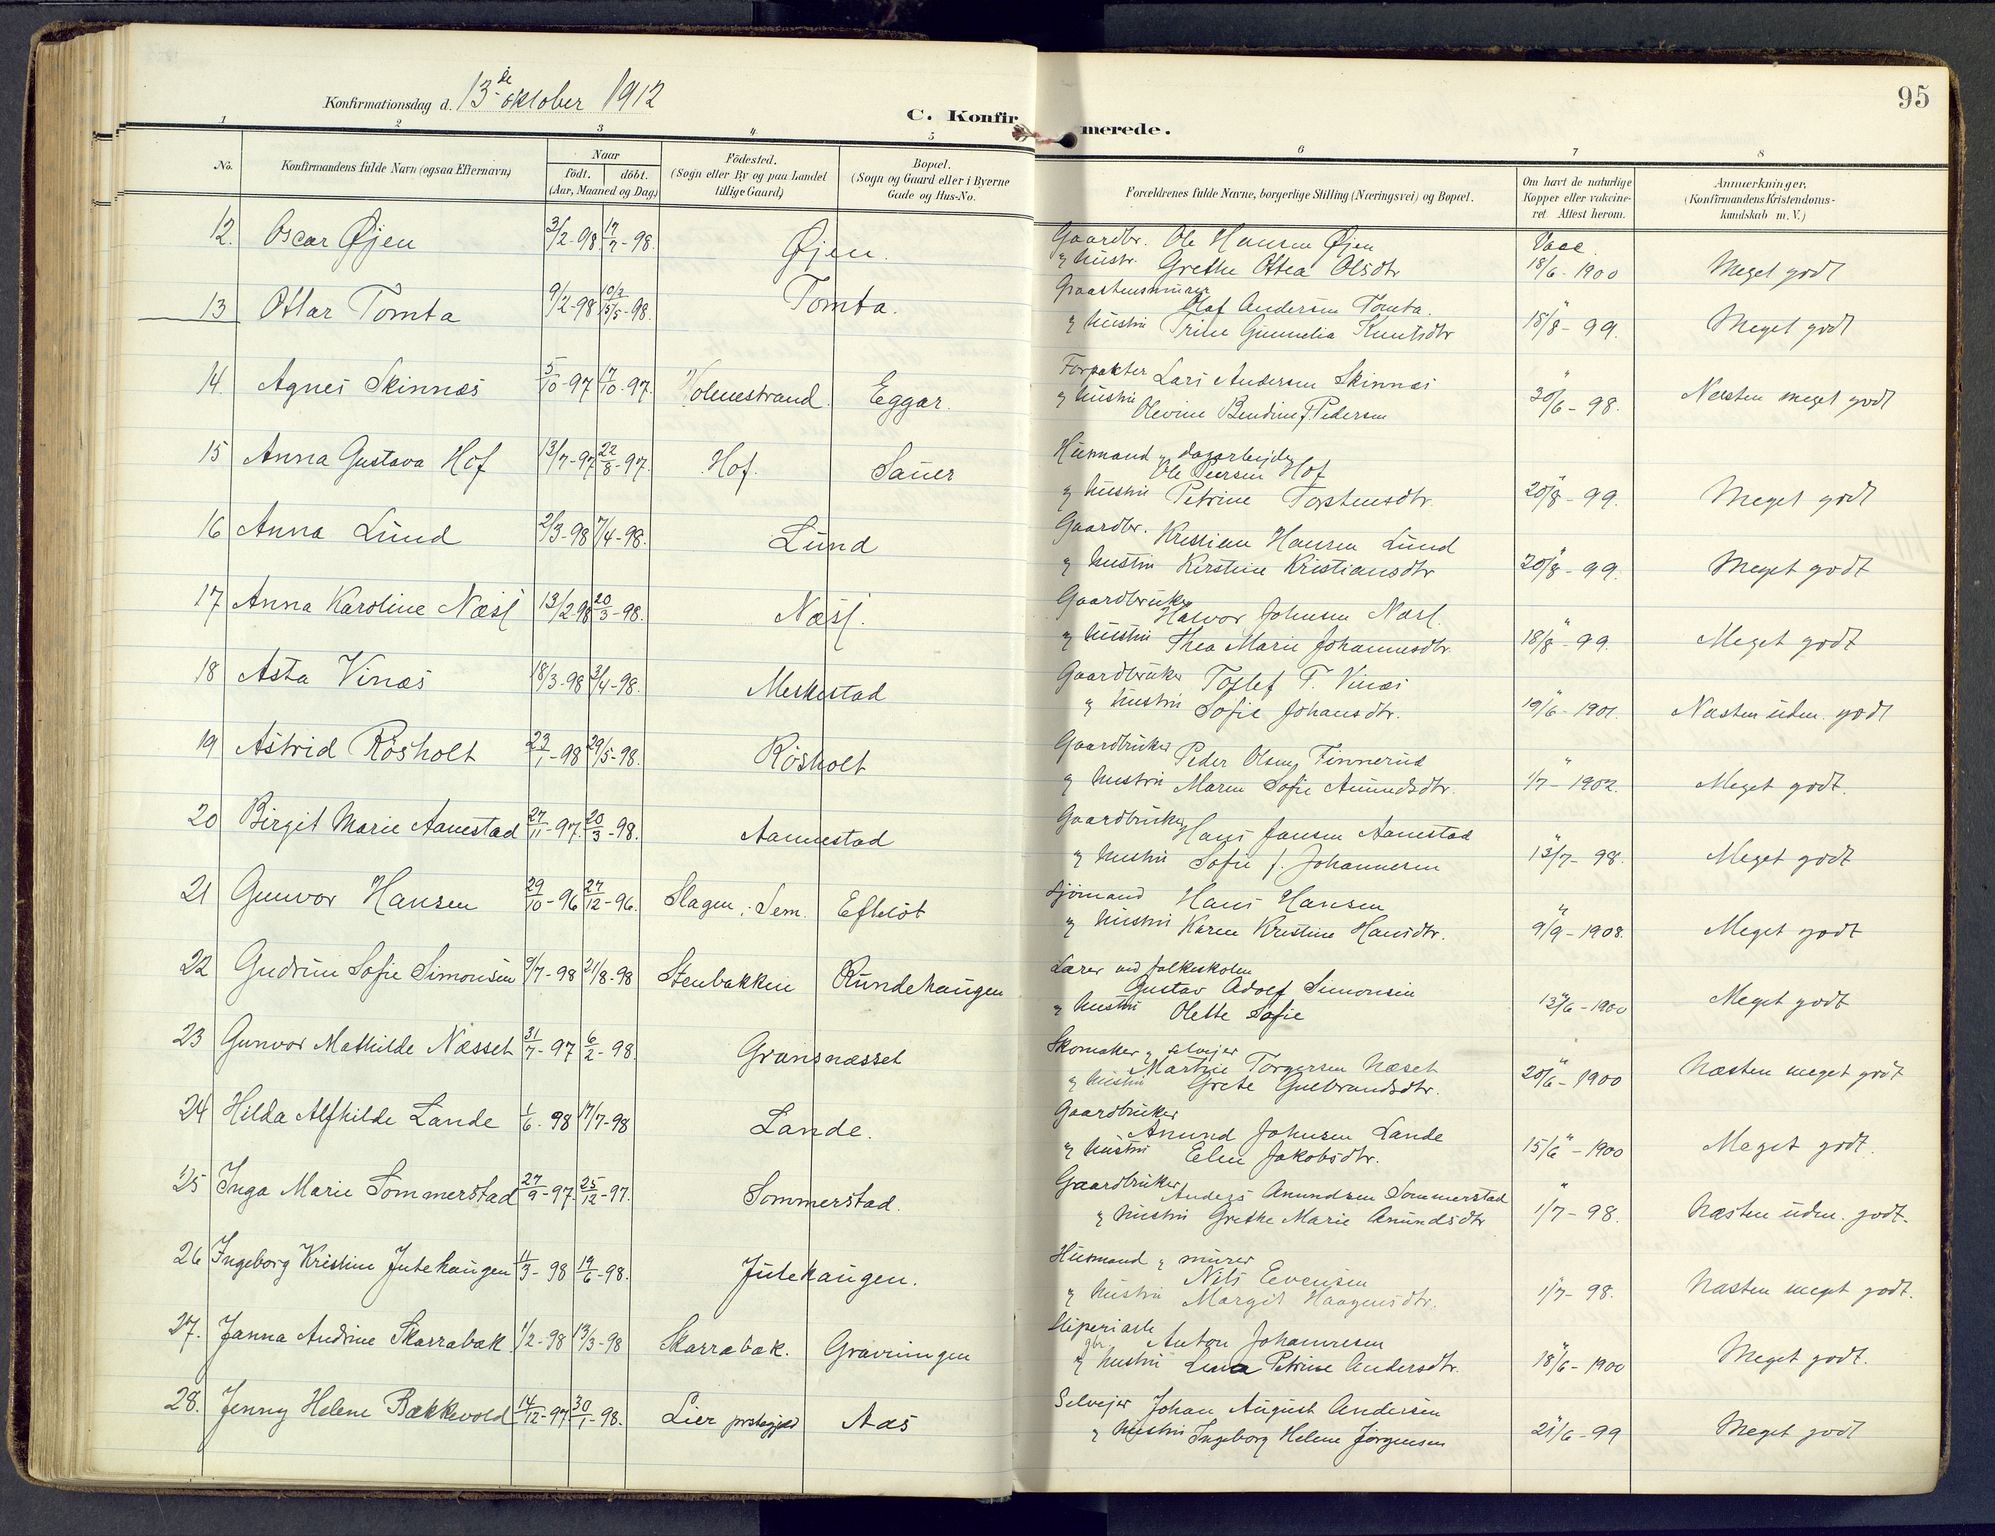 95
Konfirmationsdag d. 13de oktober 1912
C. Konfirmerede.
1 2 3 4 5 6 7 8
No. Konfirmandens fulde Navn (ogsaa Efternavn) Naar födt. döbt. (Aar, Maaned og Dag) Födested. (Sogn eller By og paa Landet tillige Gaard) Bopæl. (Sogn og Gaard eller i Byerne Gade og Hus-No. Forældrenes fulde Navne, borgerlige Stilling (Næringsvei) og Bopæl. Om havt de naturlige Kopper eller vakcineret. Attest herom. Anmærkninger. (Konfirmandens Kristendomskundskab m. V.)
12. Oscar Øjen 3/2-98 17/7-98. Øjen. Gaardbr. Ole Hansen Øjen Vacc. 18/6-1900 Meget godt
og hustr. Grethe Ottea Olsdtr
13 Ottar Tomta 9/2-98 10/3 15/5-98. Tomta. Graastensmurer Olaf Andersen Tomta. " 18/8-99. Meget godt
og hustru Trine Gunnelia Knutsdtr
14. Agnes Skinnæs 5/10-97 17/10-97. Holmestrand Eggar. Forpakter Lars Andersen Skinnæs " 30/6-98. Næsten meget godt
og hustru Olevine Bendine f. Pedersen
15 Anna Gustava Hof 13/7-97 22/8-97. Hof. Sauer Husmand og dagarbejder Ole Peersen Hof " 20/8-99. Meget godt
og hustru Petrine Torstensdtr.
16 Anna Lund 2/3-98 7/4-98. Lund Gaardbr. Kristian Hansen Lund " 20/8-99. Meget godt
og hustru Kirstine Kristiansdtr
17 Anna Karoline Næsl 13/2-98 20/3-98. Næsl. Gaardbruker Halvor Johnsen Næsl. " 18/8-99. Meget godt
og hustru Thea Marie Johannesdtr.
18 Asta Vinæs 18/3-98 3/4-98. Meskestad Gaardbruker Tollef T. Vinæs " 19/6-1901. Næsten udm. godt
og hustru Sofie Johansdtr.
19 Astrid Rösholt 23/1-98 29/5-98. Rösholt Gaardbruker Peder Olsen Finnerud " 1/7-1902. Meget godt.
og hustru Maren Sofie Amundsdtr.
20 Birgit Marie Aanestad 27/11-97. 20/3-98. Aannestad Gaardbruker Hans Jansen Aanestad " 13/7-98. Meget godt
og hustru Sofie f. Johannesen
21 Gunvor Hansen 29/10-96 27/12-96. Slagen, Sem. Efteløt Sjömand Hans Hansen " 9/9-1908. Meget godt
og hustru Karen Kristine Hansdtr.
22 Gudrun Sofie Simonsen 9/7-98 21/8-98 Stenbakken Rundehaugen Lærer ved folkeskolen Gustav Adolf Simonsen " 13/6-1900 Meget godt
og hustru Olette Sofie
23 Gunvor Mathilde Næsset 31/7-97 6/2-98. Gransnæsset Skomaker og selvejer Martin Torgersen Næset " 20/6-1900 Næsten meget godt
og hustru Grete Gulbrandsdtr.
24 Hilda Alfhilde Lande 1/6-98 17/7-98 Lande. Gaardbruker Anund Johnsen Lande " 15/6-1900 Meget godt.
og hustru Elen Jakobsdtr.
25 Inga Marie Sommerstad 27/9-97 25/12-97. Sommerstad. Gaardbruker Anders Anundsen Sommerstad " 1/7-98. Næsten udm. godt.
og hustru Grethe Marie Anundsdtr
26 Ingeborg Kristine Jutehaugen 11/3-98 19/6-98. Jutehaugen. Husmand og murer Nils Evensen " 1/7-98. Næsten meget godt.
og hustru Margit Haagensdtr.
27. Janna Andrine Skarrabak 1/2-98 13/3-98 Skarrabak. Gravningen Anton Johannesen " 18/6-1900 Meget godt.
gbr. og hustru Lena Petrine Andersdtr.
28. Jenny Helene Bækkevold 14/12-97 30/1-98. Lier prstegjæld Aas Selvejer Johan August Andersen " 21/6-99 Meget godt
og hustru Ingeborg Helene Jörgensen